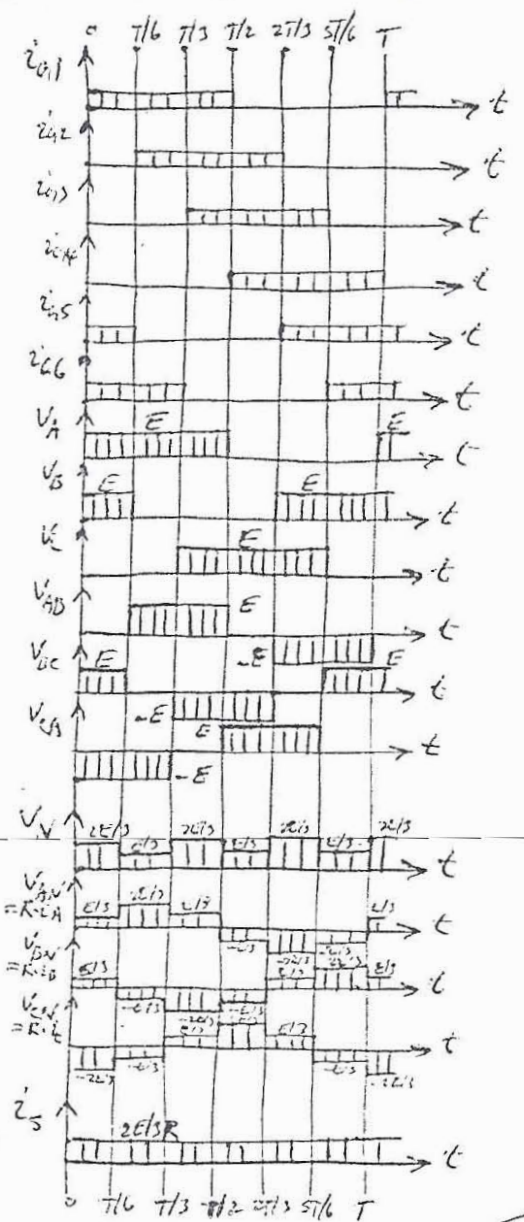 0 T/6 T/3 T/2 2T/3 5T/6 T
iG1 t
iG2 t
iG3 t
iG4 t
iG5 t
iG6 t
VA E E t
VB E E t
VC E t
VAB E -E t
VBC E -E E t
VCA -E E t
VN 2E/3 E/3 2E/3 E/3 2E/3 E/3 2E/3 t
VAN E/3 2E/3 E/3 -E/3 -2E/3 -E/3 E/3 t
=R·iA
VBN E/3 -E/3 -2E/3 -E/3 E/3 2E/3 E/3 t
=R·iB
VCN -2E/3 -E/3 E/3 2E/3 E/3 -E/3 -2E/3 t
=R·iC
iS 2E/3R t
0 T/6 T/3 T/2 2T/3 5T/6 T